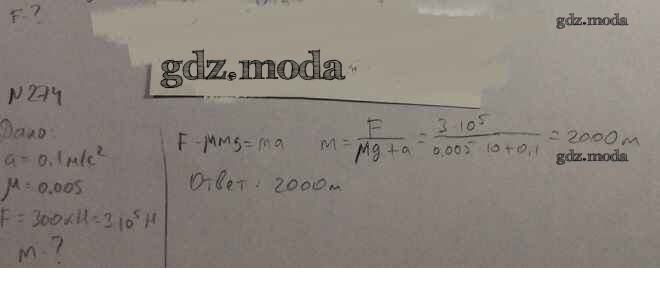 F-?
gdz.moda
gdz.moda
N274
Дано:
a = 0,1 м/с²
μ = 0.005
F = 300кН = 3·10⁵ Н
m-?
F - μmg = ma m = F / μg + a = 3·10⁵ / 0,005·10 + 0,1 = 2000 м
gdz.moda
Ответ: 2000 м